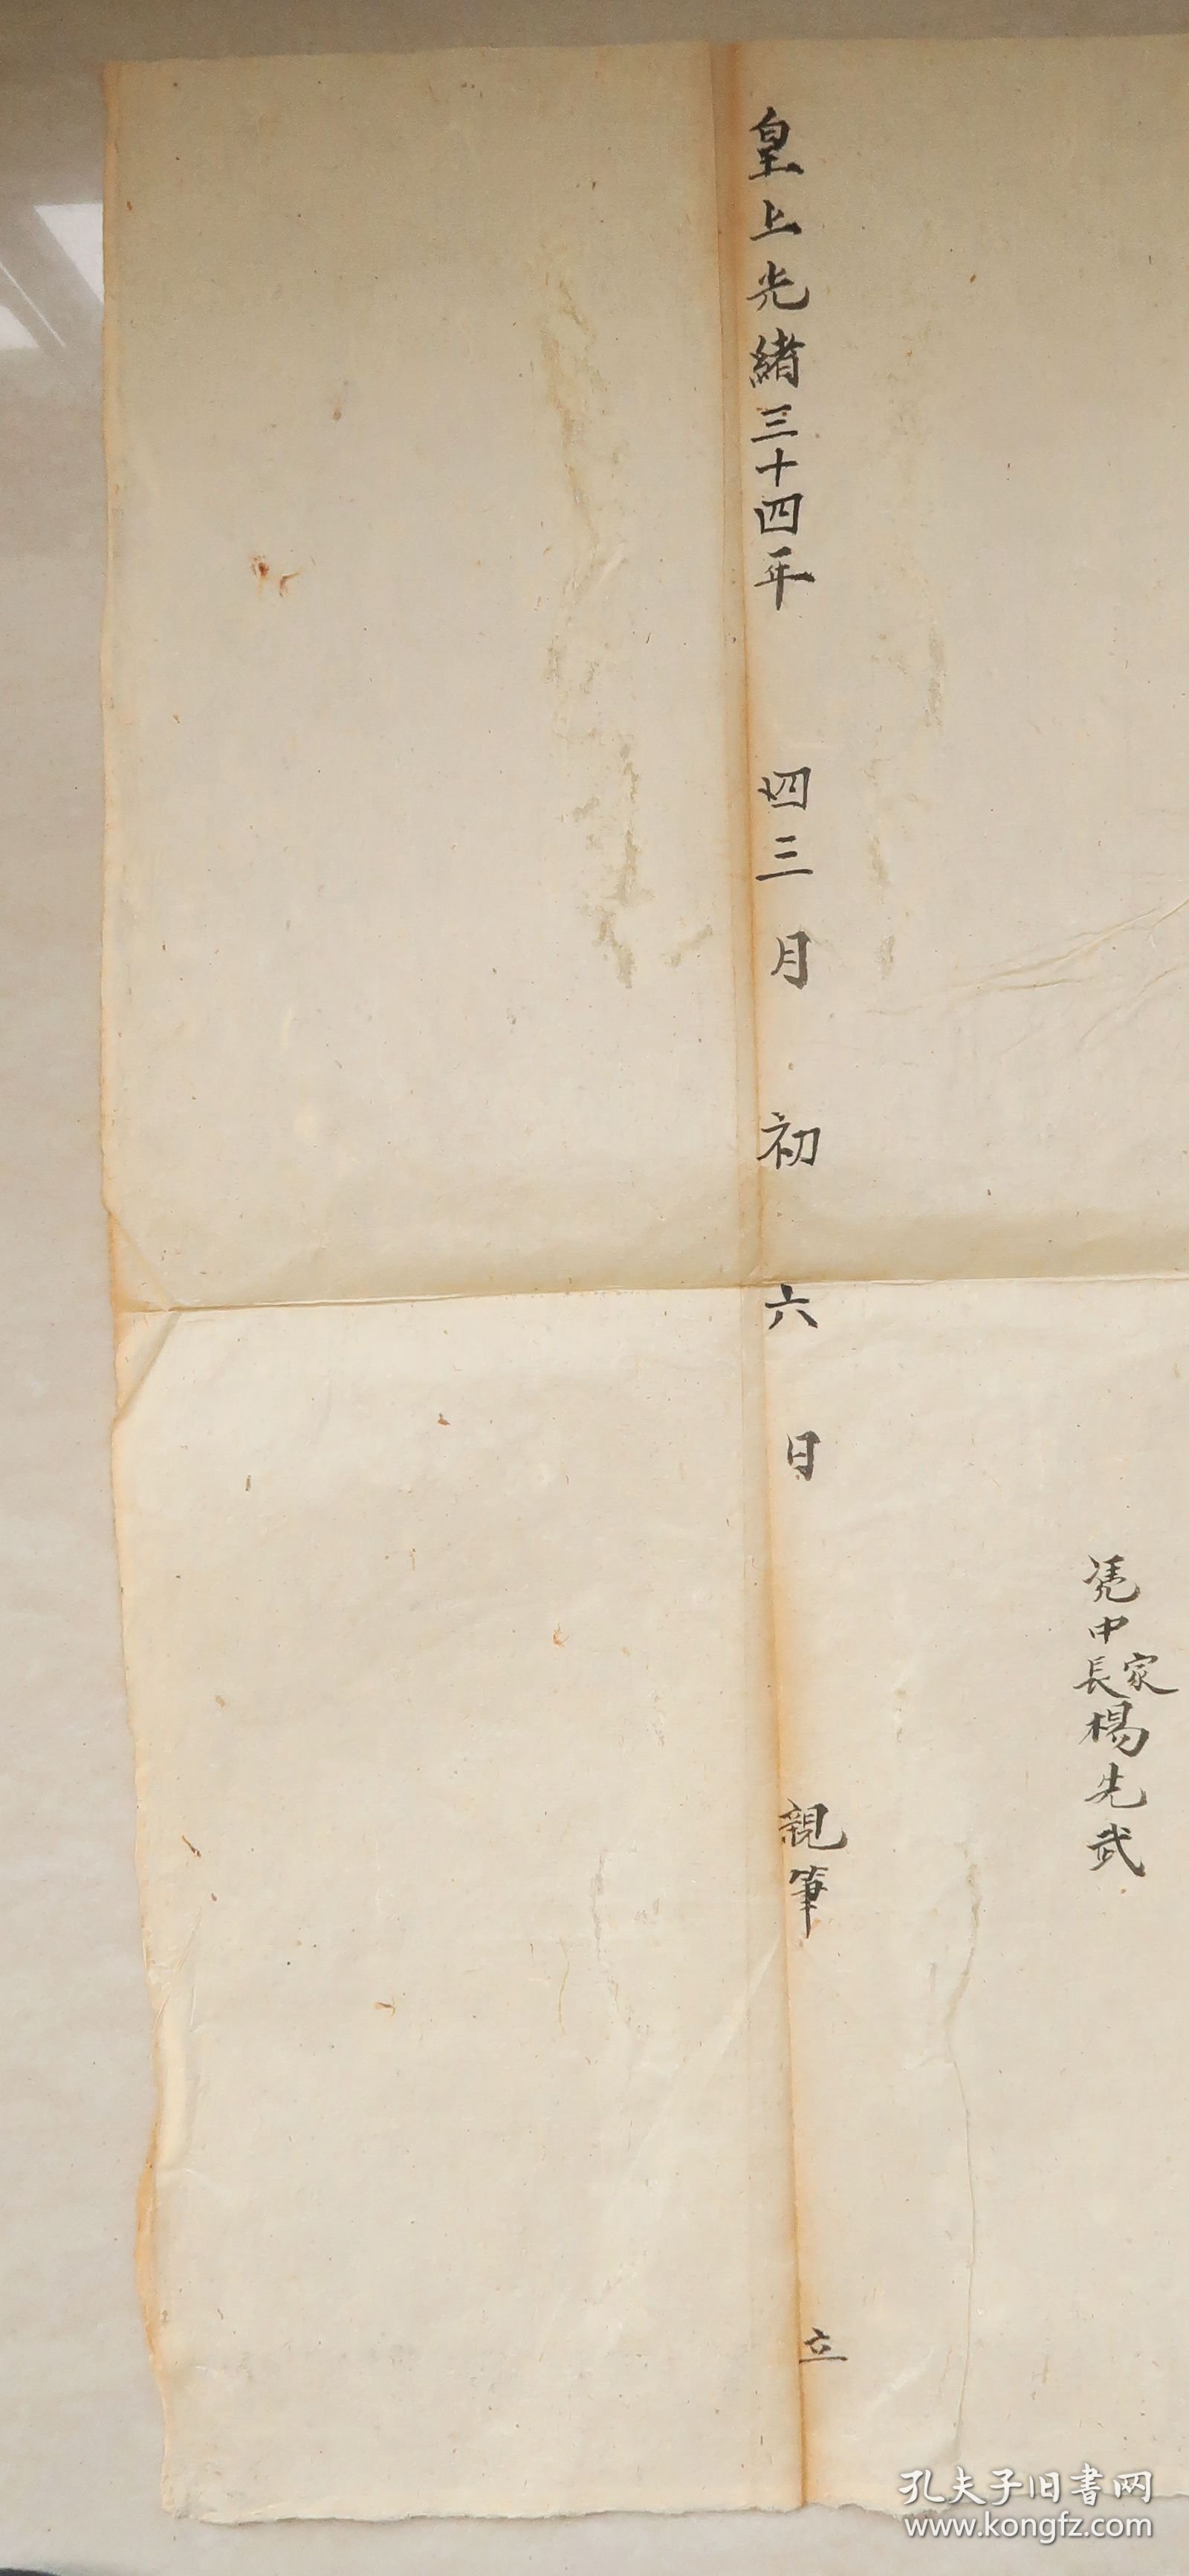 凴中家長楊先武
皇上光緒三十四年 四三月初六日 親筆 立
孔夫子旧书网
www.kongfz.com